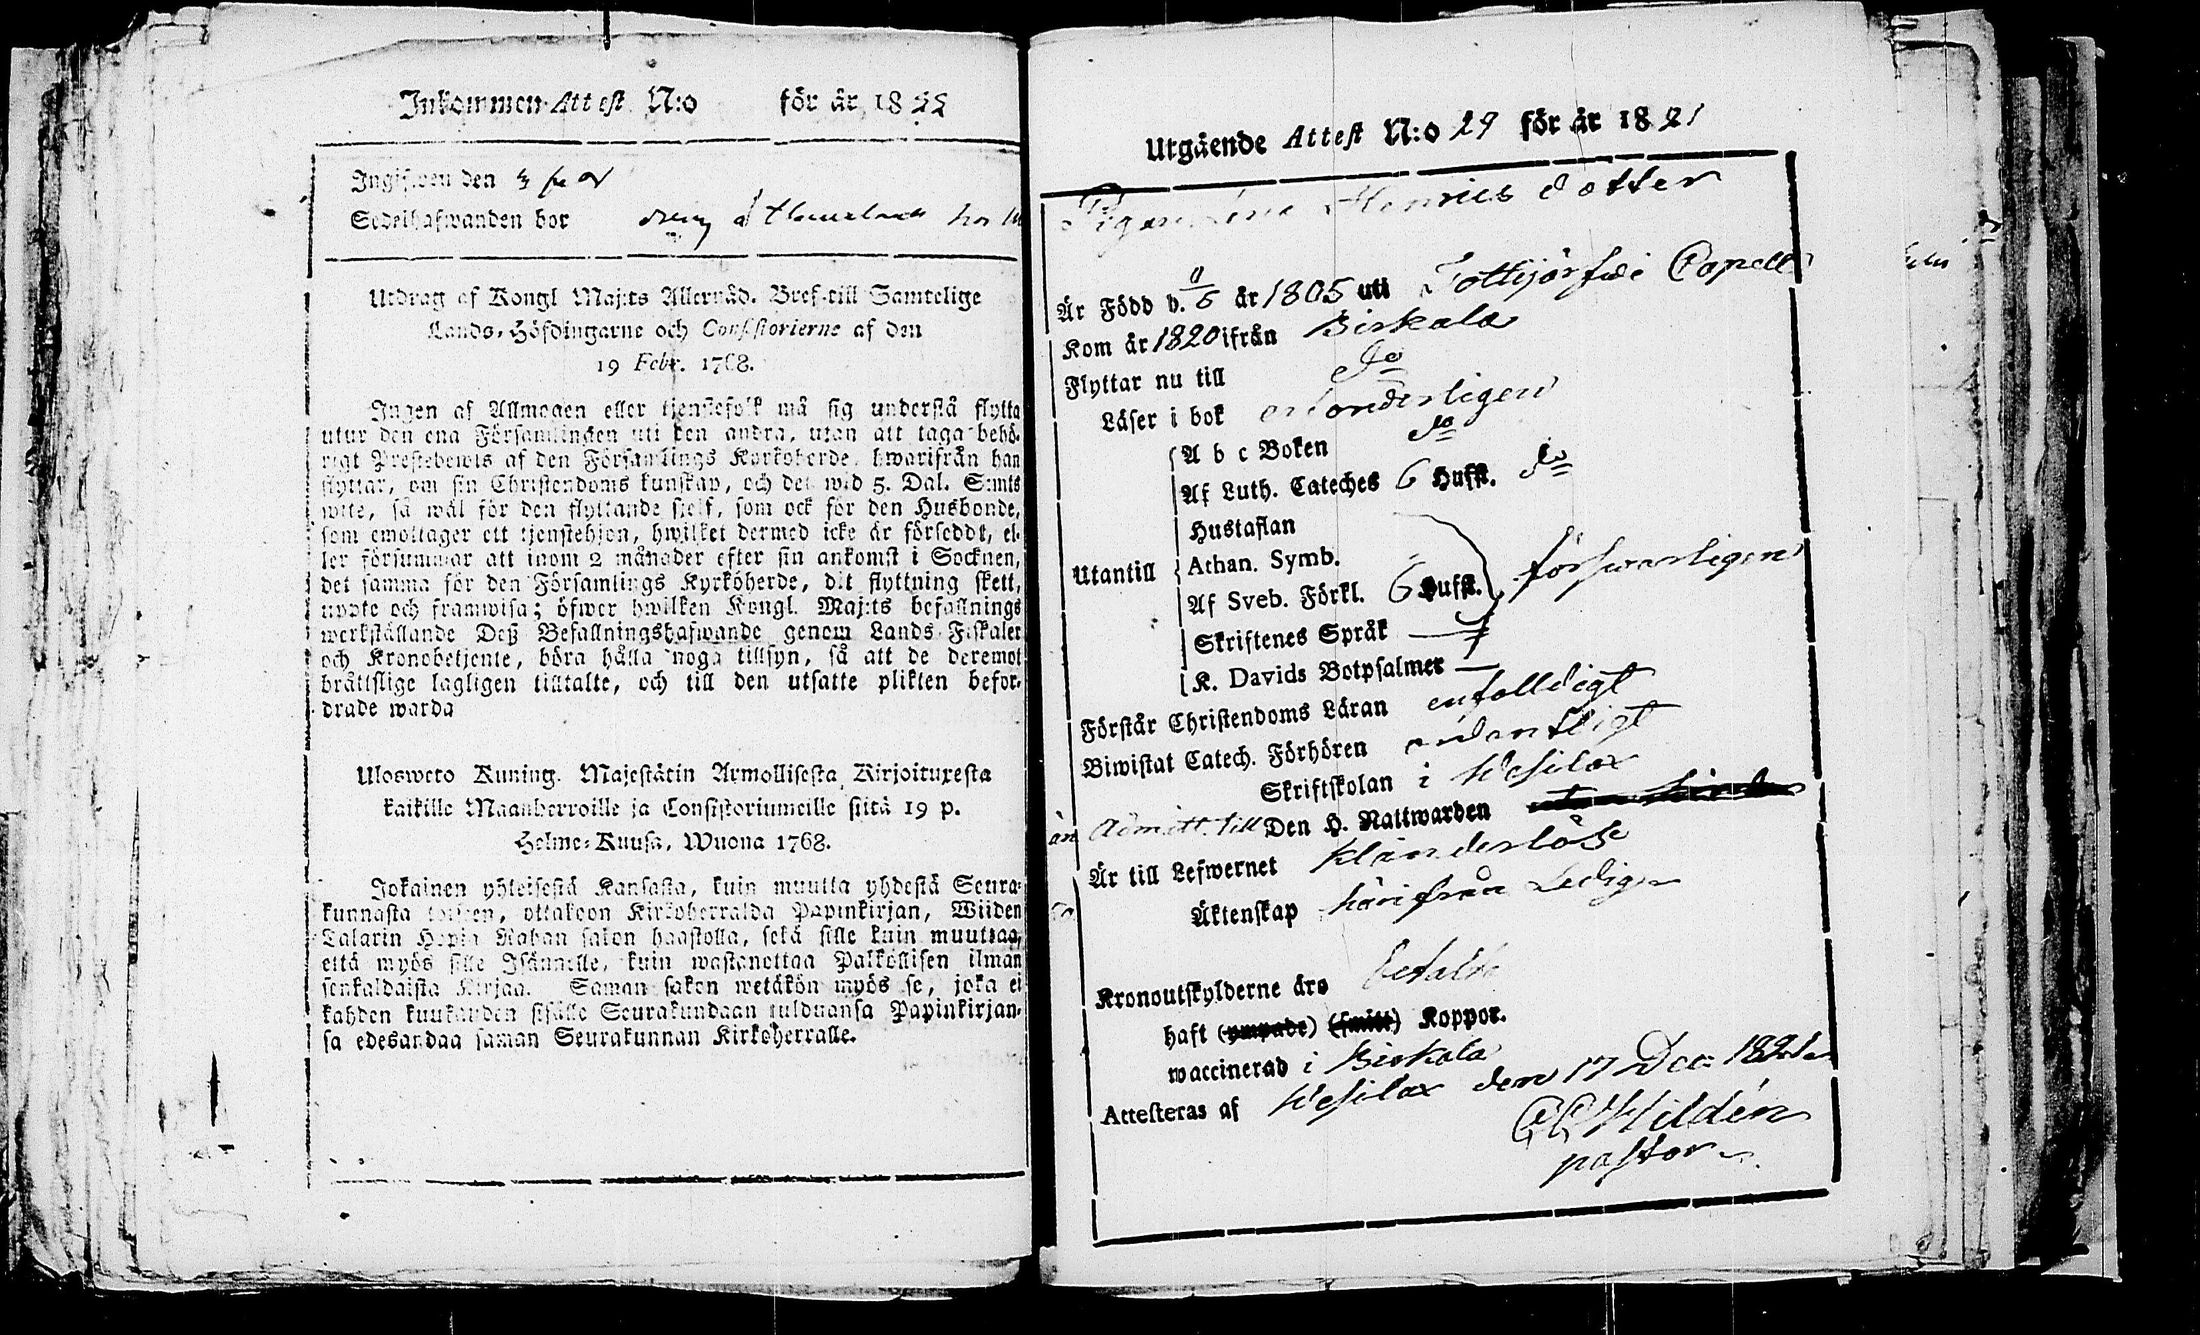 Inkommen Attest N:o för år 1822
Ingifwen den
Sedelhafwanden bor
Utdrag af Kongl Maj:ts Allernåd. Bref till Samtelige
Lands-Höfdingarne och Consistorierne af den
19 Febr. 1768.
Ingen af Allmogen eller tjenstefolk må sig understå flytta
utur den ena Församlingen uti den andra, utan att taga behö-
rigt Prestebewis af den Församlings Kyrkoherde, hwarifrån han
flyttar, om sin Christendoms kunskap, och det wid 5. Dal. S:mts
wite, så wäl för den flyttande sjelf, som ock för den Husbonde,
som emottager ett tjenstehjon, hwilket dermed icke är försedt, el-
ler försummar att inom 2 månader efter sin ankomst i Socknen,
det samma för den Församlings Kyrkoherde, dit flyttning skett,
uppte och framwisa; öfwer hwilken Kongl. Maj:ts befallnings
werkställande Deß Befallningshafwande genom Lands Fiskaler
och Kronobetjente, böra hålla noga tillsyn, så att de deremot
bråttslige lagligen tilltalte, och till den utsatte plikten befor-
drade warda
Ulosweto Kuning. Majestätin Armollisesta Kirjoituxesta
kaikille Maanherroille ja Consistoriumeille siitä 19 p.
Helme-Kuusa, Wuona 1768.
Jokainen yhteisestä Kansasta, kuin muutta yhdestä Seura-
kunnasta toiseen, ottakoon Kirkoherralda Papinkirjan, Wiiden
Talarin Hopia Rahan sakon haastolla, sekä sille kuin muuttaa,
että myös sille Isännälle, kuin wastanottaa Palkollisen ilman
senkaldaista Kirjaa. Saman sakon wetäkön myös se, joka ei
kahden kuukauden sisälle Seurakundaan tulduansa Papinkirjan-
sa edesandaa saman Seurakunnan Kirkoherralle.
Utgående Attest N:o 29 för år 1821
Pigan Lena Henrics dotter
Är Född d. 9/6 år 1805 uti Tottijärfwi Capell
Kom år 1820 ifrån Birkala
Flyttar nu till do
Läser i bok
A b c Boken do
Af Luth. Cateches 6 Hufst. do
Hustaflan
Utantill Athan. Symb.
Af Sveb. Förkl. 6 Hufst. försvarligen
Skriftenes Språk
K. Davids Botpsalmer
Förstår Christendoms Läran enfalldigt
Biwistat Catech. Förhören ordentligt
Skriftskolan i Wesilax
Admitt. till Den H. Nattwarden
Är till Lefwernet klanderlöse
Äktenskap härifrån Ledig
Kronoutskylderne äro betalte
haft (ympade) (smitt) Koppor.
waccinerad i Birkala
Attesteras af Wesilax den 17 Dec 1821
Hildén
pastor